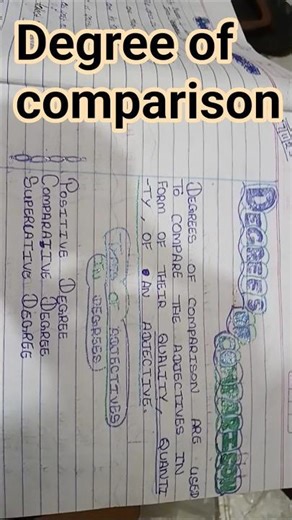 Degree of
comparison
DEGREES OF COMPARISON
DEGREES OF COMPARISON ARE USED
TO COMPARE THE ADJECTIVES IN
FORM OF THEIR QUALITY, QUANTI
-TY, OF AN ADJECTIVE.
OF ADJECTIVES
IN DEGREES
POSITIVE DEGREE
COMPARATIVE DEGREE
SUPERLATIVE DEGREE